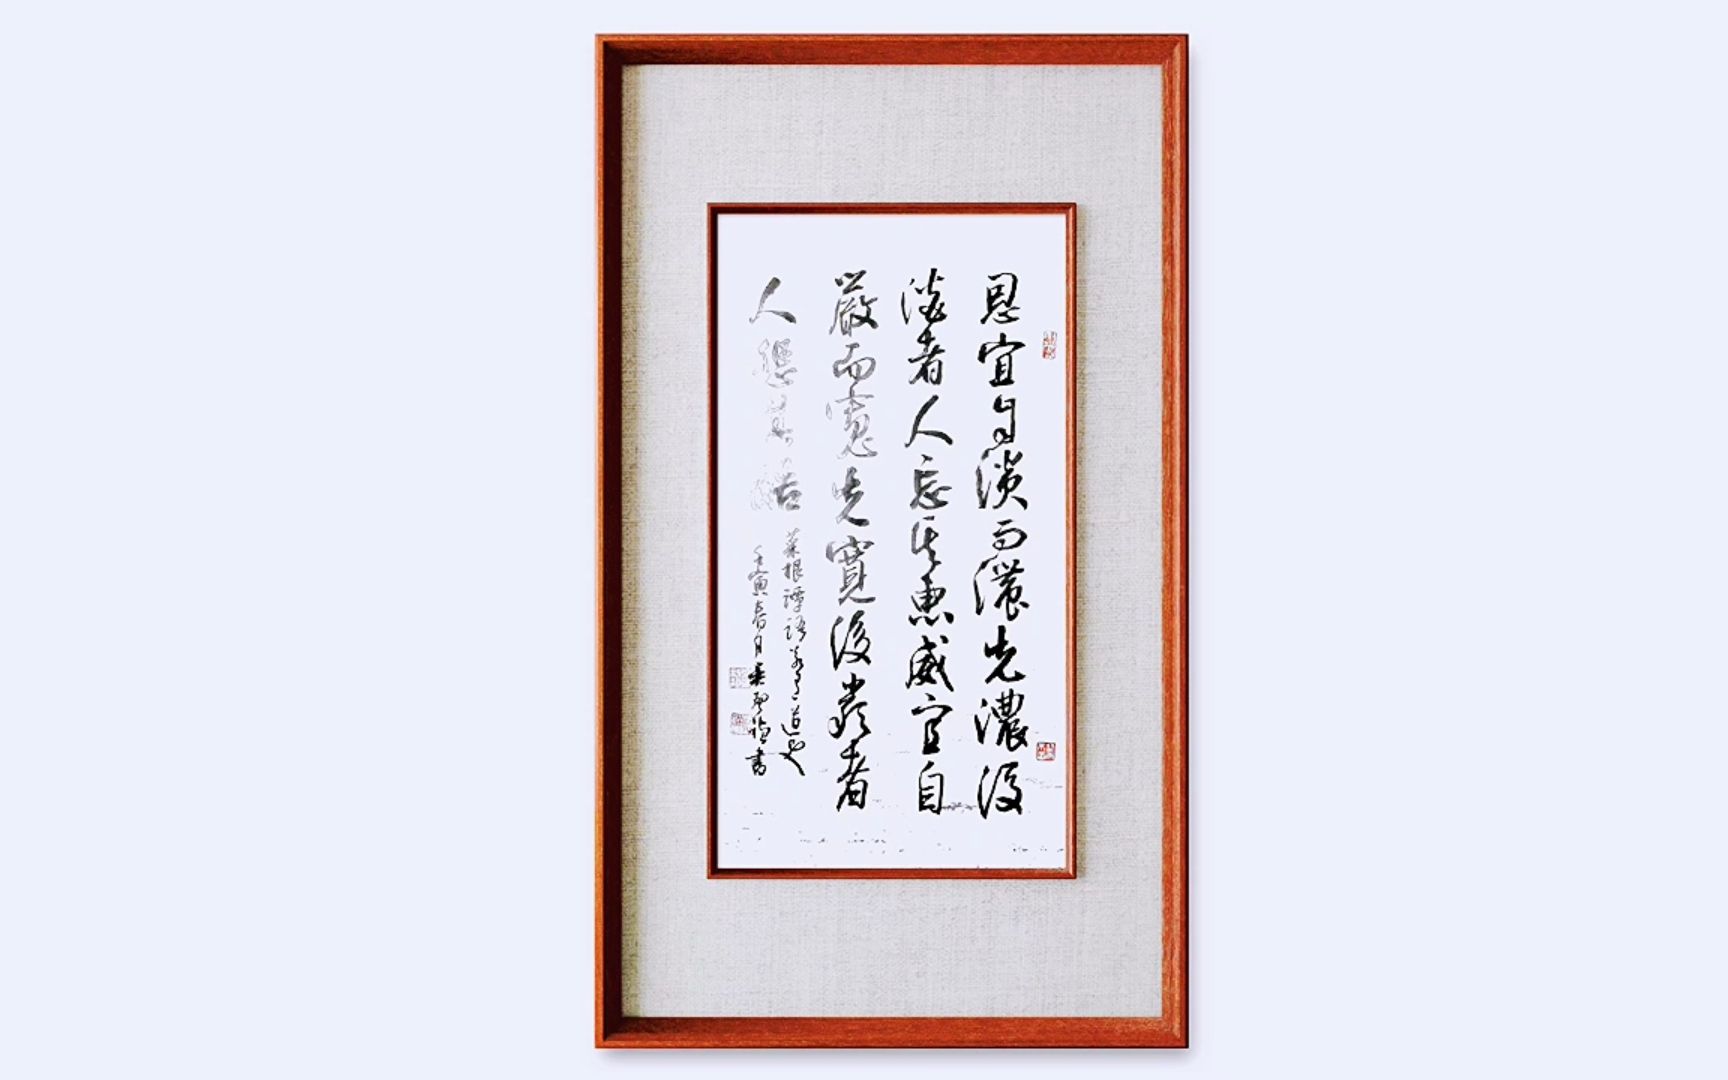 恩宜自淡而濃先濃後
淡者人忘其惠威宜自
嚴而寬先寬後嚴者
人怨其酷
菜根譚語道也
壬寅春月書